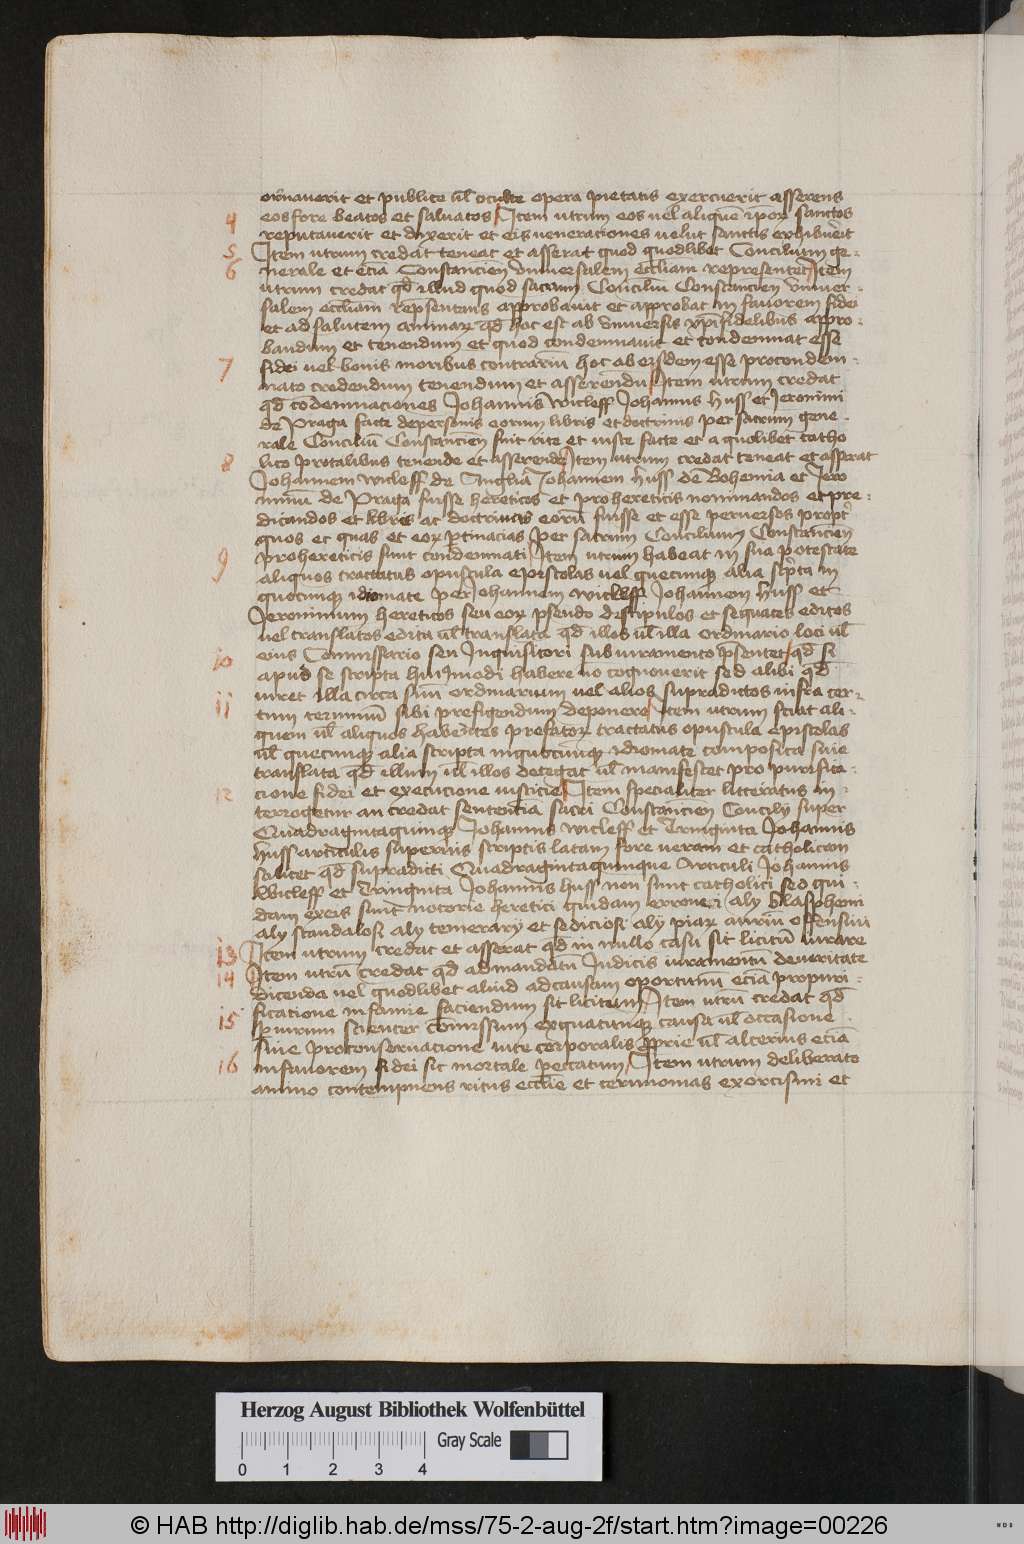 ordinaverit et publice ul oculte opera pietatis exercuerit asserens
4 eos fore beatos et salvatos Item utrum eos uel aliquē ipor sanctos
reputauerit et dixerit et eis ueneraciones uelut sanctis exhibuerit
5 Item utrum credat teneat et asserat quod quodlibet Concilium ge-
6 nerale et ecia Constancien vniuersalem eccliam representet Item
utrum credat qd illud quod sacrum Conciliū Constancien vniuer-
salem eccliam repsentans approbauit et approbat in fauorem fidei
et ad salutem animar qd hoc est ab vniuersis xpifidelibus appro-
bandum et tenendum et quod condemnauit et condemnat esse
7 fidei uel bonis moribus contrariū hoc ab eisdem esse procondem-
nato credendum tenendum et asserendū Item utrum credat
qd codemnaciones Johannis wicleff Johannis Huss et Jeronimi
de Praga facte depersonis eorum libris et doctrinis per sacrum gene-
rale Conciliū Constancien fuit rite et iuste facte et a quolibet catho
8 lico protalibus tenende et asserende Item utrum credat teneat et asserat
Johannem wicleff de Anglia Johannem Huss de Bohemia et Jero
nimū de Praga fuisse hereticos et prohereticis nominandos et pre-
dicandos et libris ac doctrinas eorū fuisse et esse peruersos propt
quos et quas et eor ptinacias per sacrum Concilium Constancien
9 prohereticis sunt condemnati Item utrum habeat in sua potestate
aliquos tractatus opuscula epistolas uel quecunq alia scpta in
quocunq idiomate per Johannem wicleff Johannem Huss et
Jeronimum hereticos seu eor pseudo discipulos et sequates editos
uel translatos edita ul translata qd illos ul illa ordinario loci ul
10 eius Commissario seu Inquisitori sub iuramento psentet qd si
apud se scripta huiusmodi habere no cognouerit sed alibi qd
11 iuret illa circa suū ordinarium uel alios supradictos infra cer-
tum terminū sibi prefigendum deponere Item utrum sciat ali-
quem ul aliquos habentes prefator tractatus opuscula epistolas
ul quecunq alia scripta inquocunq idiomate composita siue
translata qd illum ul illos detegat ul manifestet pro purifica-
12 cione fidei et execucione iusticie Item specialiter litteratus in-
terrogetur an credat sentencia sacri Constancien Concilij super
Quadragintaquinq Johannis wicleff et Triginta Johannis
Huss articulis superius scriptis latam fore ueram et catholicam
scilicet qd supradicti Quadragintaquinque Articuli Johannis
Wicleff et Triginta Johannis Huss non sunt catholici sed qui-
dam exeis sunt notorie heretici quidam erronei aly blasphemi
aly scandalosi aly temerarij et sediciosi alij piar auriū offensiui
13 Item utrum credat et asserat qd in nullo casu sit licitū iurare
14 Item utrū credat qd admandatū Judicis iuramentū deueritate
dicenda uel quodlibet aliud adcausam oportunū eciā propuri-
ficatione infamie faciendum sit licitum Item utrū credat qd
15 piurium scienter comissum exquacunq causa ul occasione
siue proconseruacione uite corporalis pprie ul alterius eciā
16 infauorem fidei sit mortale peccatum Item utrum deliberato
animo contempnens ritus ecclie et cerimonias exorcismi et
Herzog August Bibliothek Wolfenbüttel
Gray Scale
0 1 2 3 4
© HAB http://diglib.hab.de/mss/75-2-aug-2f/start.htm?image=00226